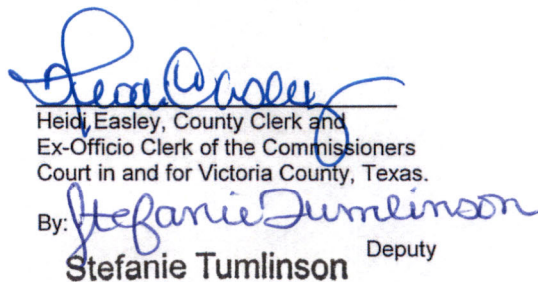 Heidi Easley
Heidi Easley, County Clerk and
Ex-Officio Clerk of the Commissioners
Court in and for Victoria County, Texas.
By: Stefanie Tumlinson
Deputy
Stefanie Tumlinson